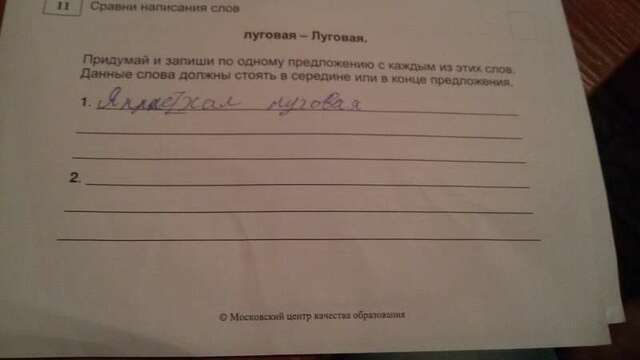 11 Сравни написания слов
луговая – Луговая.
Придумай и запиши по одному предложению с каждым из этих слов.
Данные слова должны стоять в середине или в конце предложения.
1. Я луговая
2.
© Московский центр качества образования